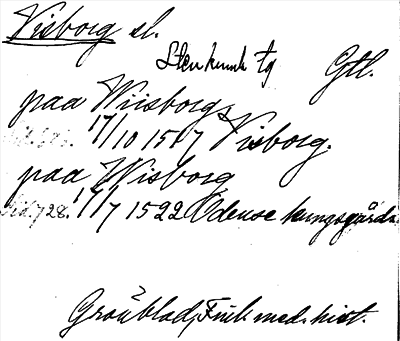 Visborg sl.
Stenkumla tg Gtl.
paa Wiisborg
17/10 1517 Visborg.
paa Wisborg
728. 17/7 1522 Odense kungsgård.
Grönblad, Finl. med. hist.